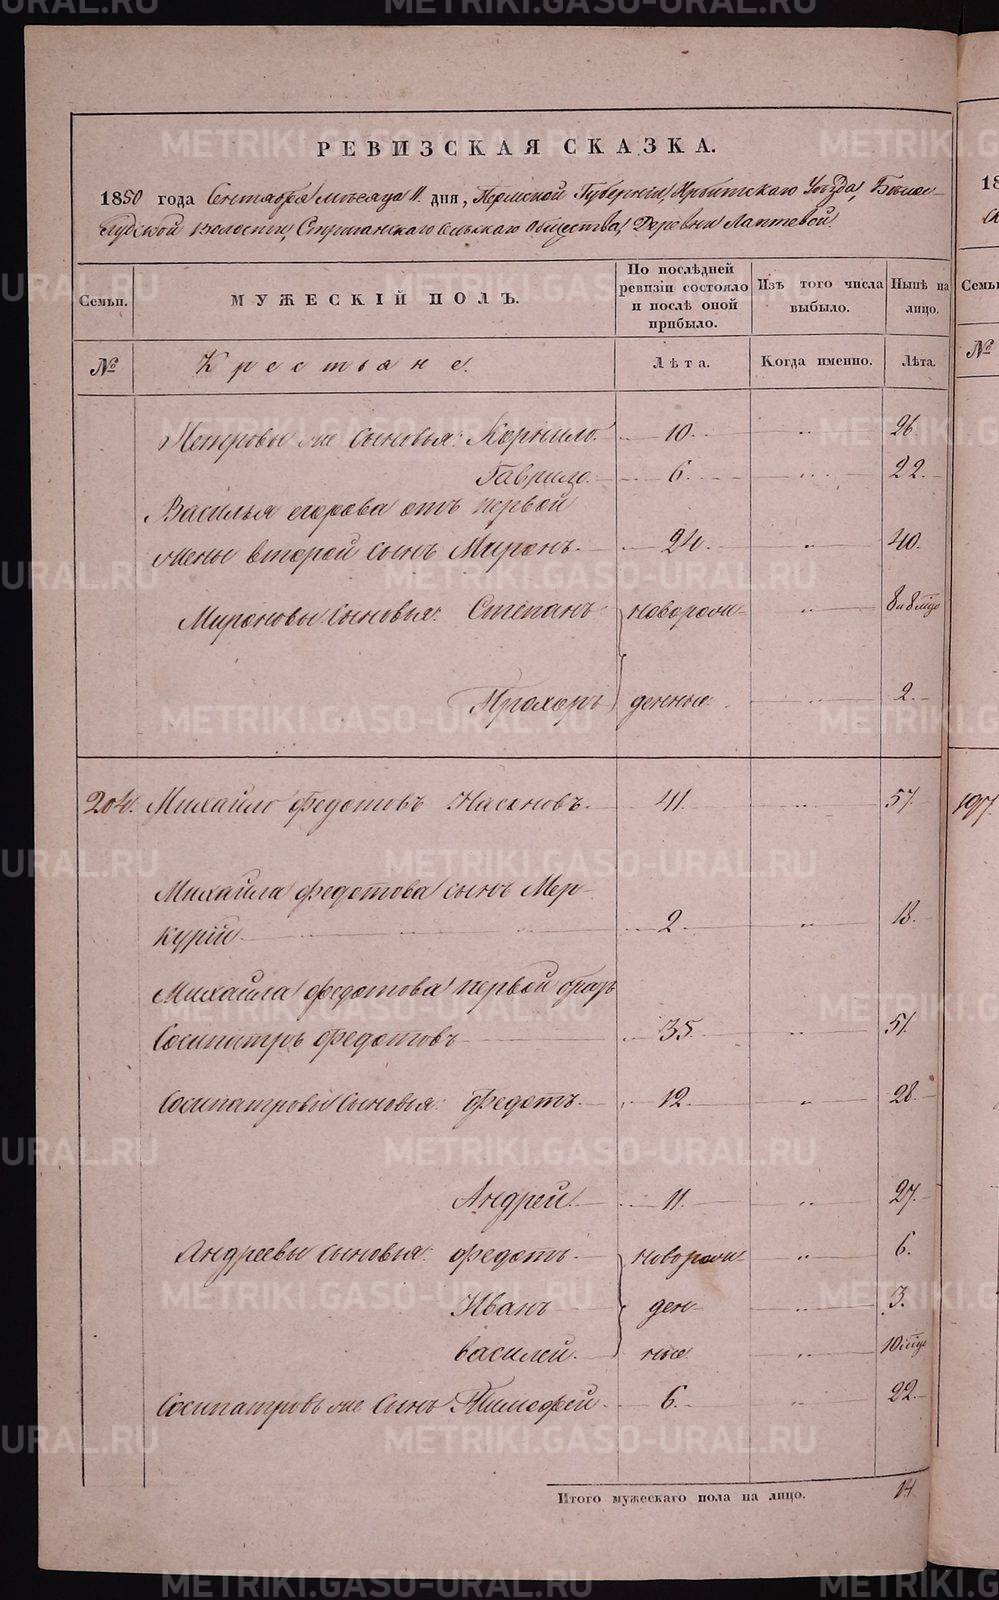 РЕВИЗСКАЯ СКАЗКА.
1850 года Сентября мѣсяца 11 дня, Пермской Губерніи, Ирбитскаго Уѣзда, Бѣло-
слудской волости, Стриганскаго сельскаго Общества, Деревни Лаптевой.
Семьи. МУЖЕСКІЙ ПОЛЪ. По послѣдней ревизіи состояло и послѣ оной прибыло. Изъ того числа выбыло. Нынѣ на лицо.
№ Крестьяне. Лѣта. Когда именно. Лѣта.
Петровы же сыновья: Корнило. 10. „ 26
Гаврило. 6. „ 22.
Василья егорова отъ первой
жены второй сынъ Миронъ. 24. „ 40.
Мироновы сыновья: Степанъ новорож- „ 8 и 8 мѣс
Прохоръ денные. „ 2.
204. Михайло Федотовъ Насоновъ. 41. „ 57.
Михайла Федотова сынъ Мер-
курій 2. „ 18.
Михайла Федотова первой братъ
Сосипатръ Федотовъ 35. „ 51.
Сосипатровы сыновья: Федотъ. 12. „ 28.
Андрей. 11. „ 27.
Андреевы сыновья: Федотъ. новорож- „ 6.
Иванъ ден- „ 3.
василей. ные. „ 10 мѣс
Сосипатровъ же сынъ Тимофей. 6. „ 22.
Итого мужескаго пола на лицо. 14
18
Семьи
№
197.
METRIKI.GASO-URAL.RU